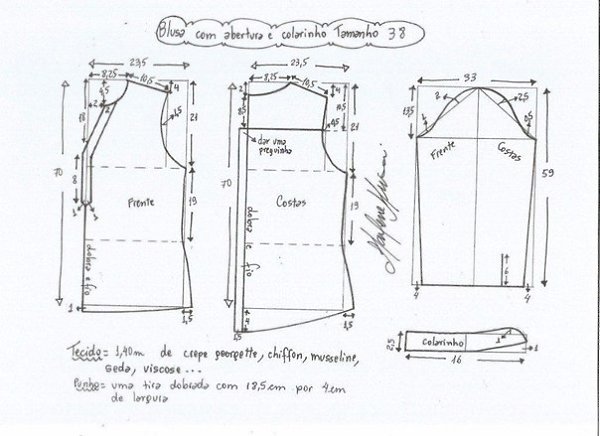 Blusa com abertura e colarinho Tamanho 38
23,5
8,25
10,5
4
4,5
2
2
4,5
18
21
70
8
1
1
Frente
19
dobra e fio
1
1,5
23,5
8,25
10,5
4
2
8,5
4,5
21
dar uma preguinha
70
Costas
19
dobra e fio
4
1,5
1,5
33
13,5
2
2,5
1
0,5
Frente
Costas
59
6
4
4
2,5
colarinho
1
16
Tecido = 1,40m de crepe georgette, chiffon, musseline,
seda, viscose ...
Punho = uma tira dobrada com 18,5cm por 4cm
de largura